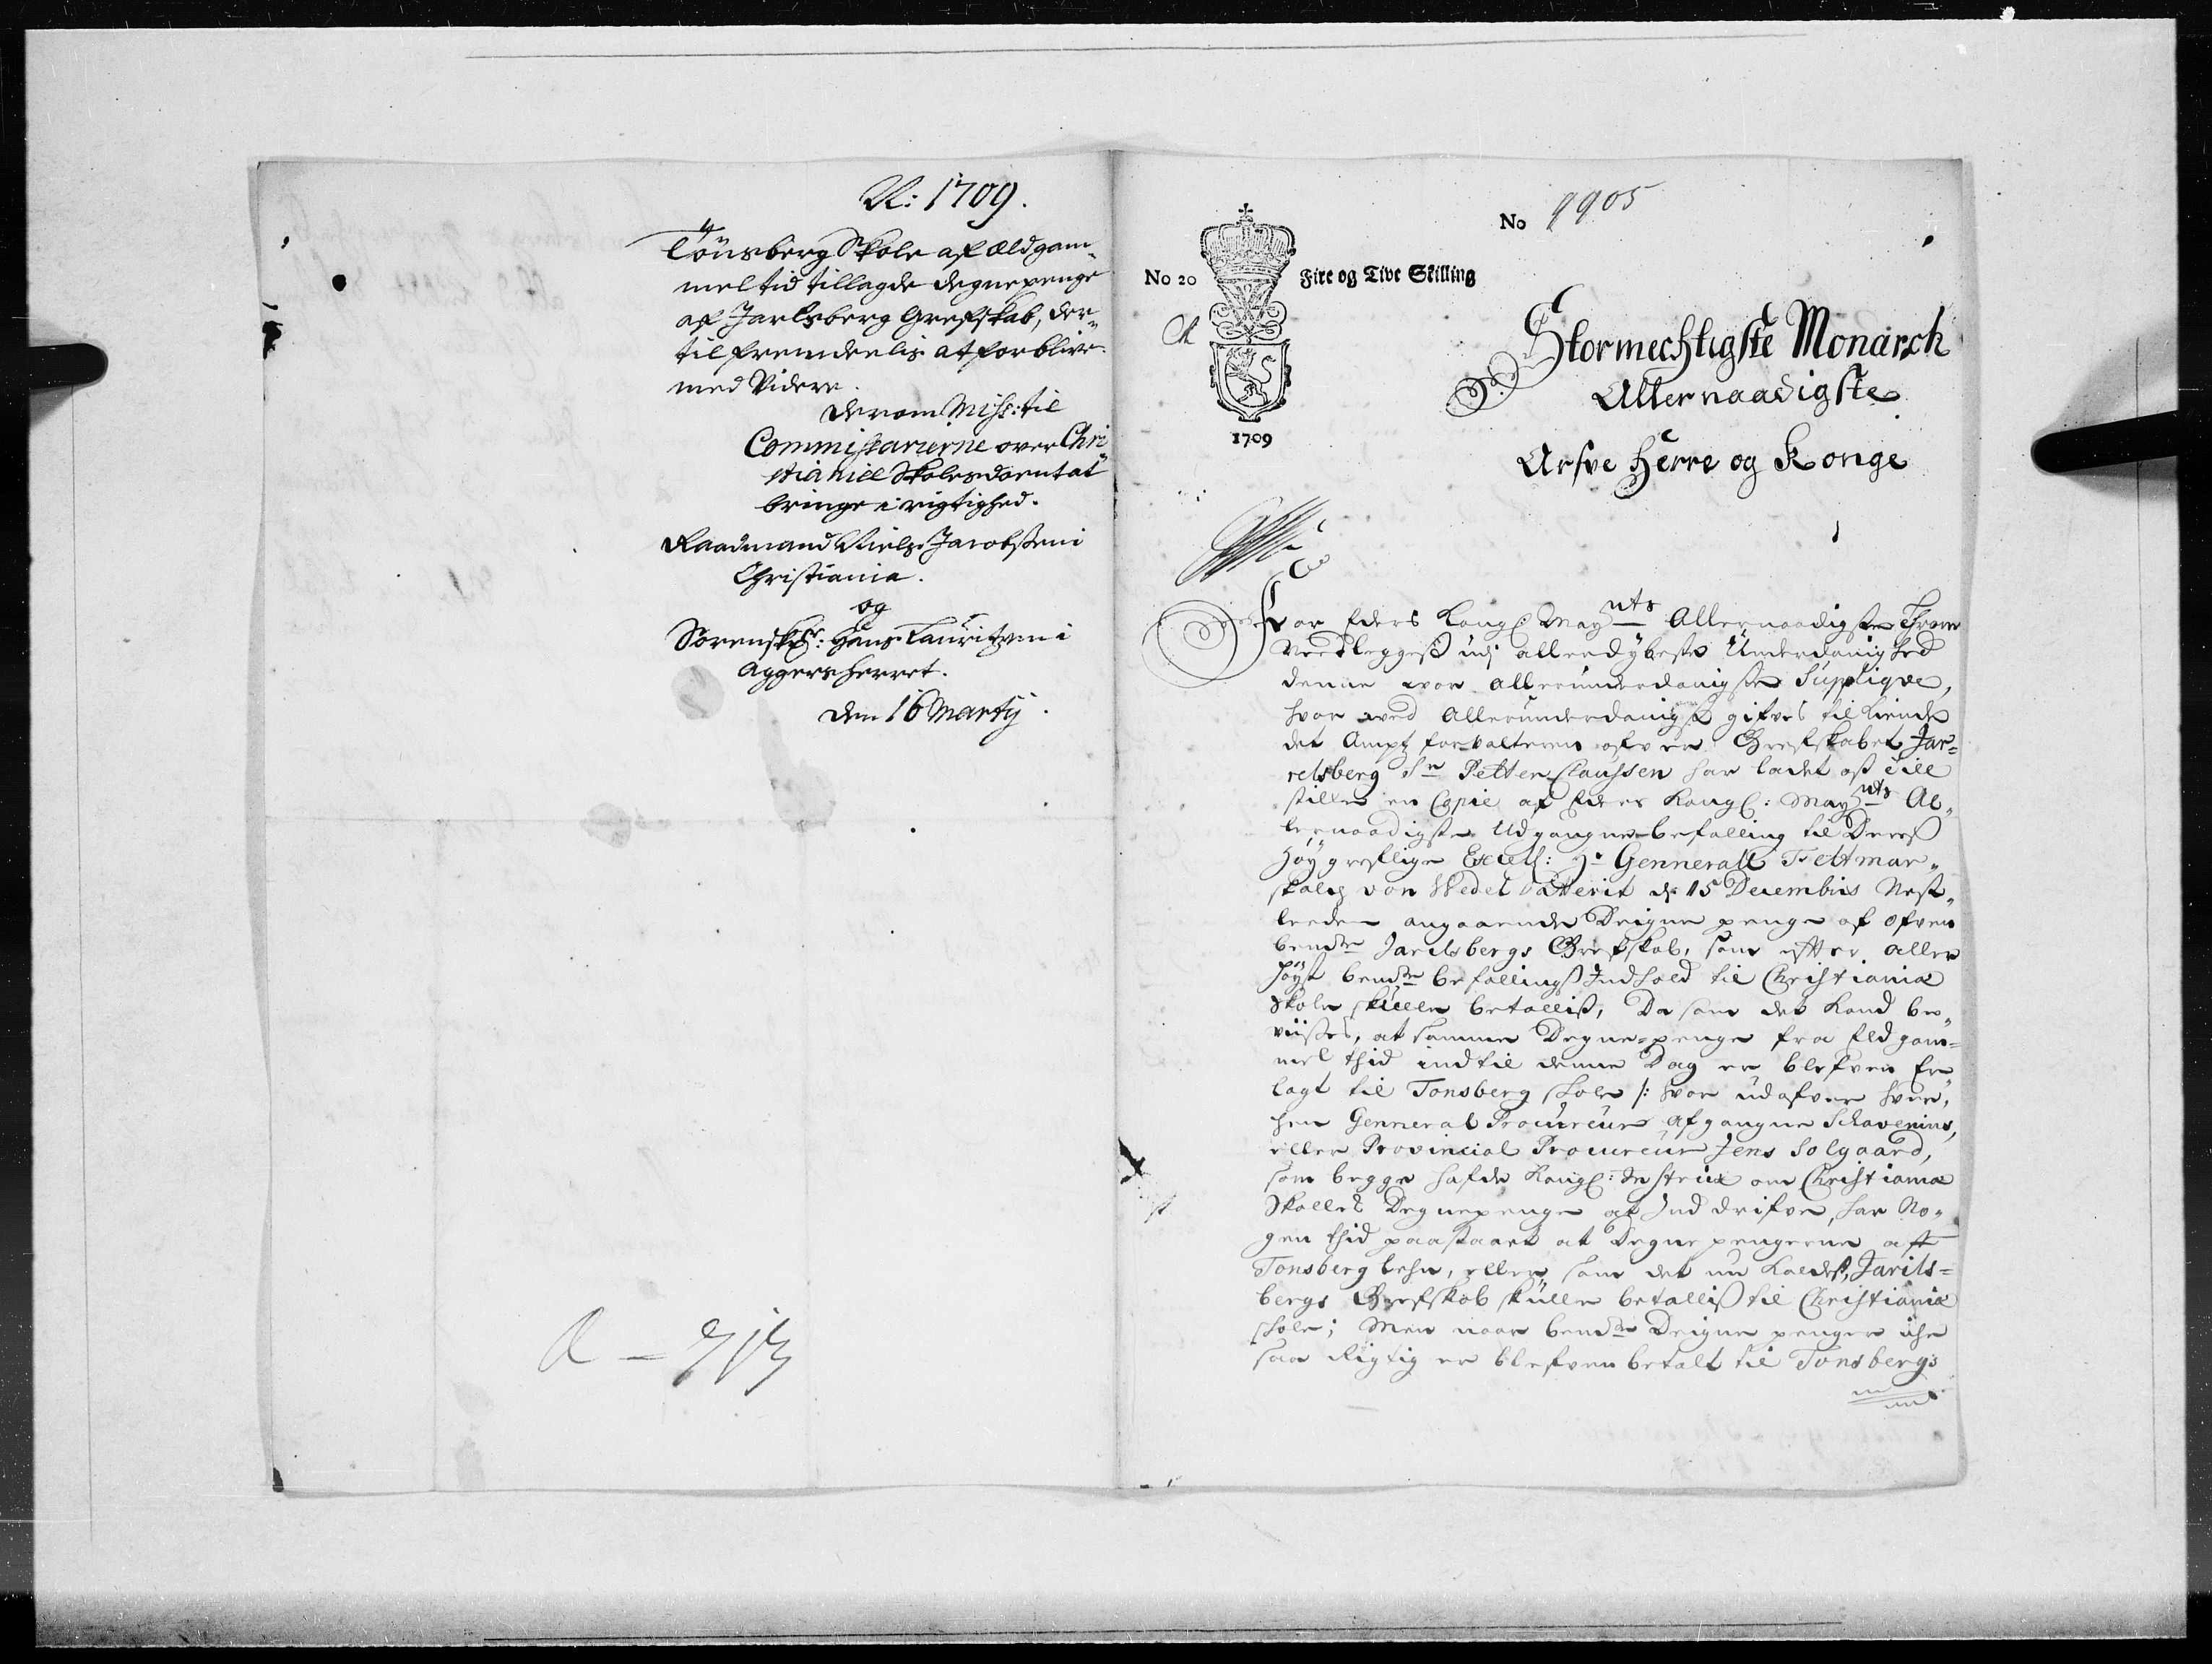 A: 1709.
Tönsberg Skole af ældgam„
meltid tillagde degnepenge
af Jarlsberg Grefskab, der„
til fremdeelis at forblive
med Videre.
derom Miss: til
Commissarierne over Chri„
stianiæ Skolesdocent at
bringe i rigtighed.
Raadmand Niels Jacobsen i
Christiania.
og
Sorenskr: Hans Lauritzen i
Aggersherret.
den 16 Martij.
No 9905
No 20
Fire og Tive Skilling
1709
Stormechtigste Monarch
Allernaadigste
Arfve Herre og Konge
For Eders Kongl: Mayts Allernaadigste Thron
Needleggeß udj allerdybeste Underdanighed
denne vor allerunderdanigste Suppliqve,
hvor ved Allerunderdanigst gifves tilkiende
det Ampt forvalteren ofver Grefskabet Jar=
relsberg Sr Petter Claussen har ladet oß till
stille en Copie af Eders Kongl: Mayts Al„
lernaadigste Udgangne befalling til Deres
Höygreflige Excell: Hr Generall Feltmar„
skalch von Wedel datterit d: 15 Decembris Nest„
leeden angaaende Deigne penge af ofven
bemte Jarelsbergs Grefskab, som efter aller
höyst bemte befallings Indhold til Christiania
Skole skulle betalliß, Da som det kand be„
viises, at samme Degne=penge fra Eldgam=
mel thid indtil denne Dag er blefven Er„
lagt til Tonsberg skole /: hvor udofver hver„
ken General Procureur afgangne Schavenius,
eller Provincial Procureur Jens Solgaard,
som begge hafde Kongl: Instrux om Christiania
Skolles Degnepenge at Inddrifve, har No„
gen thid paastaaet at Degne pengerne aff
Tonsberg lehn, eller som det nu kaldeß, Jarils=
bergs Grefskab skulle betalliß til Christiania
skole; Men naar bemte Deigne penger iche
saa Rigtig er blefven betalt til Tonsbergs